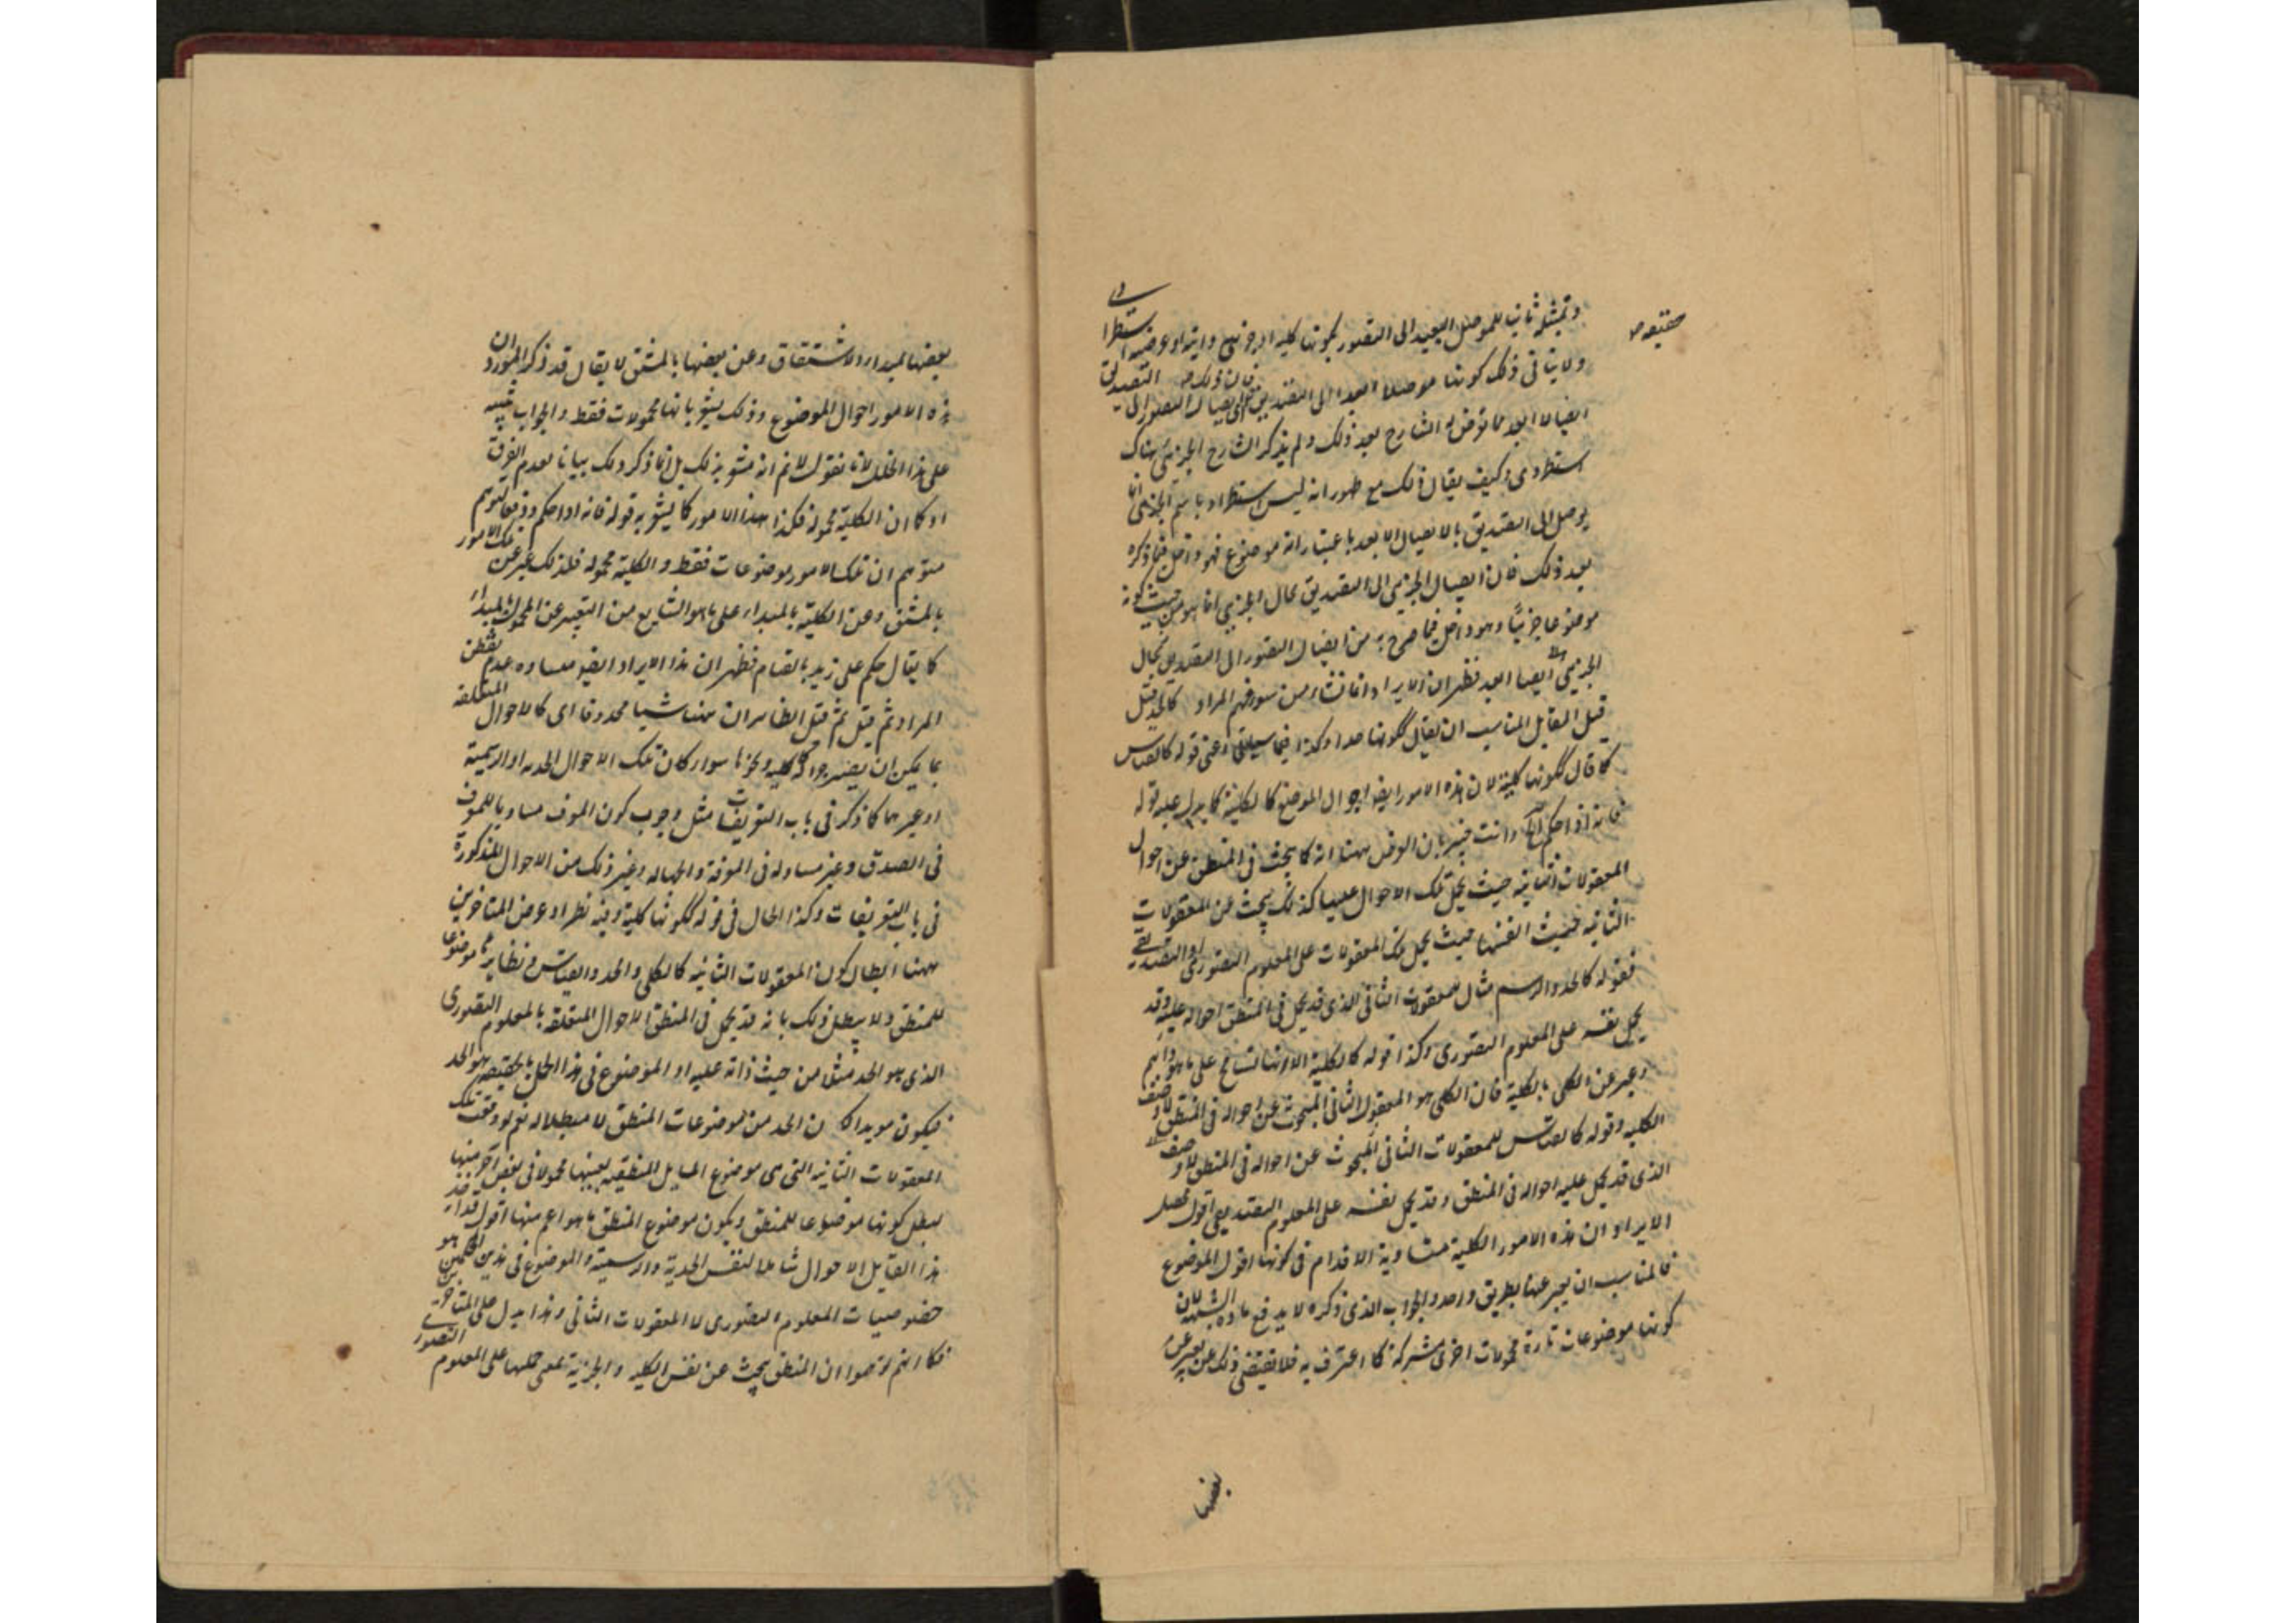 حقيقه ص
وتمثيله ثانيا للموصل البعيد الى التصور بكونها كلية او جزئية ذاتية او عرضية استطرادى
ولا ينافى ذلك كونها موصلا ابعد الى التصديق فان ذلك التصديق
ايصالا ابعد مما تعرض له الشارح بعد ذلك ولم يذكر الشارح الجزئى هناك
استطرادى وكيف يقال ذلك مع ظهور انه ليس استطراد باسم الجزئى انما
يوصل الى التصديق بالايصال الابعد باعتبار انه موضوع فهو داخل فيما ذكره
بعد ذلك فان ايصال الجزئى الى التصديق بحال الجزئى انما هو من حيث كونه
موضوعا جزئيا وهو داخل فيما صرح به من ايصال التصور الى التصديق بحال
الجزئى ايصالا ابعد فظهر ان الايراد انما نشاء من سوء فهم المراد كالحد قيل
قيل القايل المناسب ان يقال ككونها حدا وكذا فيما سياتى اعنى قوله كالقياس
كما قال ككونها كلية لان هذه الامور ايضا احوال الموضوع كالكلية كما يدل عليه قوله
فانه اذا حكم الخ وانت خبير بان الغرض ههنا انه كما يبحث فى المنطق عن احوال
المعقولات الثانية حيث يحمل تلك الاحوال عليها كذلك يبحث عن المعقولات
الثانية حيث انفسها حيث يحمل تلك المعقولات على المعلوم التصورى او التصديقى
فقوله كالحد والرسم مثال للمعقولات الثانى الذى قد يحمل فى المنطق احواله عليه وقد
يحمل نفسه على المعلوم التصورى وكذا قوله كالكلية الا انها تسامح على ما هو دابهم
وعبر عن الكلى بالكلية فان الكلى هو المعقول الثانى المبحوث عن احواله فى المنطق لا وصف
الكلية وقوله كالقياس للمعقولات الثانى المبحوث عن احواله فى المنطق لا وصف
الذى قد يحمل عليه احواله فى المنطق وقد يحمل نفسه على المعلوم التصديقى اقول محصل
الايراد ان هذه الامور الكلية متساوية الاقدام فى كونها اقول الموضوع
فالمناسب ان يعبر عنها بطريق واحد والجواب الذى ذكره لا يدفع مادة الشبهة لان
كونها موضوعات تارة محمولات اخرى مشتركة كما اعترف به فلا يقتضى ذلك عن
بعضها
بعضها بمبداء الاشتقاق وعن بعضها بالمشتق لا يقال قد ذكر المورد ان
هذه الامور احوال الموضوع وذلك يشعر بانها محمولات فقط والجواب
على هذا الخلل لانا نقول لا نم انه مشعر بذلك بل انما ذكر ذلك بيانا لعدم الفرق
او كما ان الكلية محمولة فكذا هذه الامور كما يشعر به قوله فانه اذا حكم ودفعا لتوهم
متوهم ان تلك الامور موضوعات فقط والكلية محمولة فلذلك عبر عن تلك الامور
بالمشتق وعن الكلية بالمبداء على ما هو الشايع من التعبير عن المحمول بالمبداء
كما يقال حكم على زيد بالقيام فظهر ان هذا الايراد ايضا منشاءه عدم تفطن
المراد ثم قيل ثم قيل الظاهر ان ههنا شيا محذوفا اى كالاحوال المتعلقة
بما يمكن ان يصير جوابا كلية ونحوها سواء كان تلك الاحوال الحدية او الرسمية
او غيرهما كما ذكر فى باب التعريفات مثل وجوب كون المعرف مساويا للمعرف
فى الصدق وغير مساو له فى المعرفة والجهالة وغير ذلك من الاحوال المذكورة
فى باب التعريفات وكذا الحال فى قوله ككونها كلية وفيه نظر اذ غرض المتاخرين
ههنا ابطال كون المعقولات الثانية كالكلى والحد والقياس ونظايرها موضوعا
للمنطق ولا يبطل ذلك بانه قد يحمل فى المنطق الاحوال المتعلقة بالمعلوم التصورى
الذى هو الحد مثلا من حيث ذاته عليه او الموضوع فى هذا الحمل بالحقيقة هو الحد
فيكون مويدا لكون الحد من موضوعات المنطق لا مبطلا له نعم لو وقعت تلك
المعقولات الثانية التى هى موضوع المسايل المنطقية بعينها محمولا فى بعض آخر منها
لبطل كونها موضوعا للمنطق ويكون موضوع المنطق ما هو اعم منها اقول قد اراد
هذا القايل الاحوال شاملا لنفس الحدية والرسمية والموضوع فى هذين الحكمين هو
خصوصيات المعلوم التصورى لا المعقولات الثانى وهذا يدل على المتاخرين
فكانهم توهموا ان المنطق يبحث عن نفس الكلية والجزئية بمعنى حملها على المعلوم التصورى